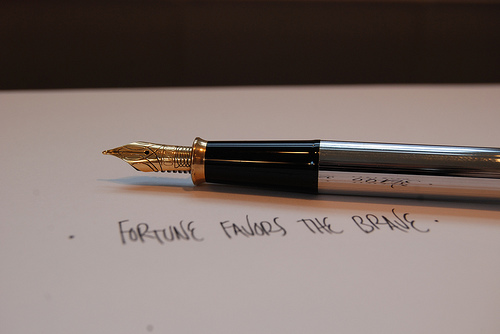 · FORTUNE FAVORS THE BRAVE ·